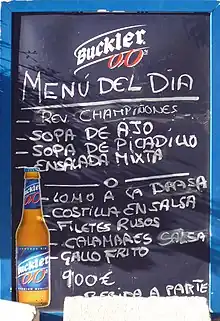 Buckler
0,0
MENÚ DEL DIA
- REV. CHAMPIÑONES
- SOPA DE AJO
- SOPA DE PICADILLO
- ENSALADA MIXTA
- O -
- LOMO A ÇA BRASA
- COSTILLA EN SALSA
- FILETES RUSOS
- CALAMARES SALSA
- GALLO FRITO
9,00€
BEBIDA A PARTE
Buckler
0,0